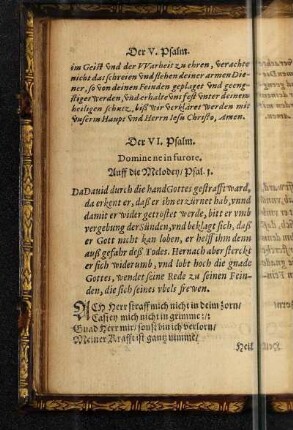 Der V. Psalm.
im Geist vnd der VVarheit zu ehren, verachte
nicht das schreien vnd flehen deiner armen Die-
ner, so von deinen Feinden geplaget vnd geeng-
stiget werden, vnd erhalte vns fest vnter deinem
heiligen schutz, biß wir verkläret werden mit
vnserm Haupt vnd Herrn Iesu Christo, Amen.
Der VI. Psalm.
Domine ne in furore.
Auff die Melodey / Psal. 1.
Da Dauid durch die hand Gottes gestrafft ward,
da erkent er, daß er ihn erzürnet hab, vnnd
damit er wider getrostet werde, bitt er vmb
vergebung der Sünden, vnd beklagt sich, daß
er Gott nicht kan loben, er helff ihm denn
auß gefahr deß Todes. Hernach aber sterckt
er sich widerumb, vnd lobt hoch die gnade
Gottes, wendet seine Rede zu seinen Fein-
den, die sich seines vbels frewen.
ACh Herr straff mich nicht in deim zorn /
Castey mich nicht in grimme :/:
Gnad Herr mir / sonst bin ich verlorn /
Meiner Krafft ist gantz nimme /
Heil